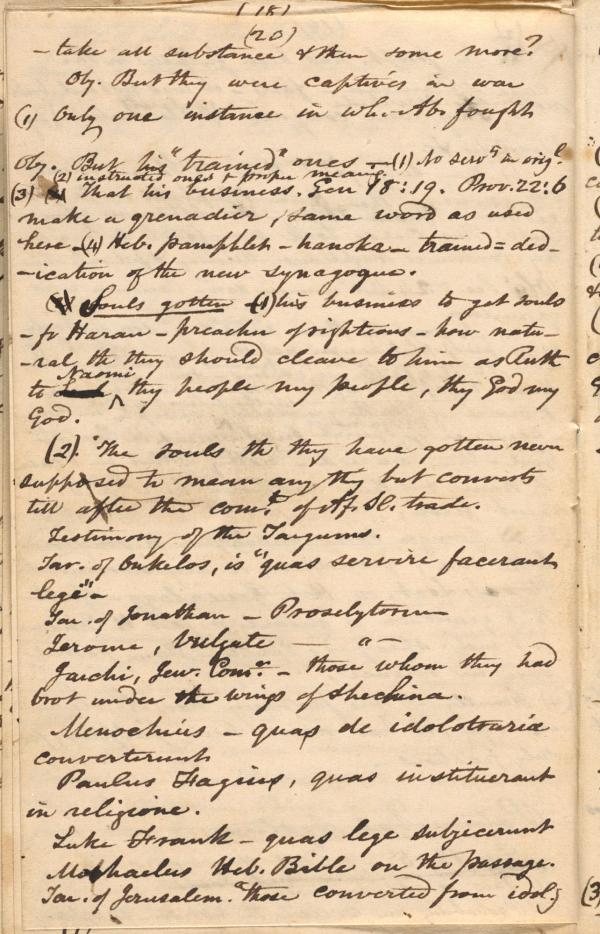 (18)
(20)
- take all substance & then some more?
Obj. But they were captives in war
(1) Only one instance in wh. Ab. fought
Obj. But his "trained" ones - (1) No serv.ts in orig.l
(2) instructed ones = proper meang.
(3) That his business. Gen 18:19. Prov. 22:6
make a grenadier, same word as used
here - (4) Heb. pamphlet - hanoka - trained = ded-
-ication of the new synagogue.
Souls gotten - (1) his business to get souls
- fr Haran - preacher of rightious - how natu-
-ral th they should cleave to him as Ruth
Naomi
to thy people my people, thy God my
God.
(2). "The souls th they have gotten never
supposed to mean any thg but converts
till after the com.t of Af. Sl. trade.
Testimony of the Targums.
Tar. of Onkelos, is "quas servire facerant
legi" -
Tar. of Jonathan - Proselytorum
Jerome, Vulgate — " —
Jarchi, Jew. Com.r - those whom they had
brot under the wings of Shechina.
Menochius - quas de idolotraria
converterunt
Paulus Fagius, quas instituerant
in religione.
Luke Frank - quas lege subjicerunt
Mechaelus Heb. Bible on the passage.
Tar. of Jerusalem. "those converted from idol.y